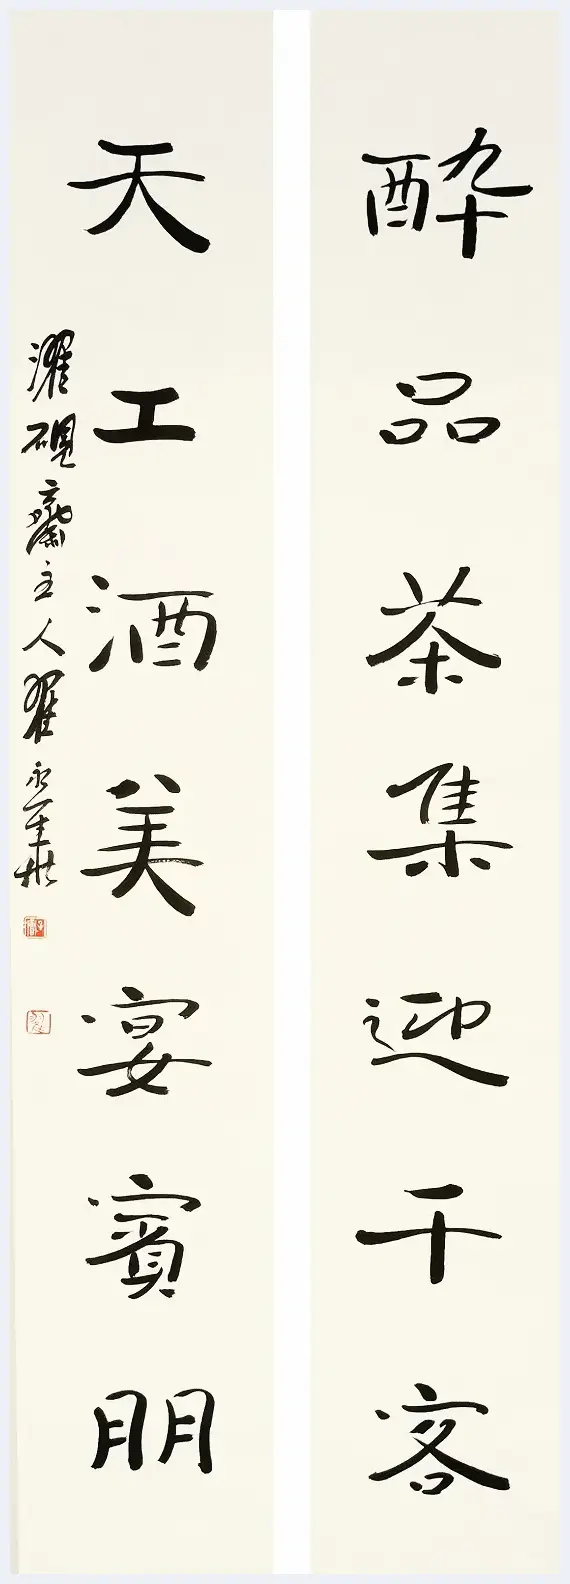 酔品茶集迎千客
天工酒美宴賓朋
濯硯齋主人翟永華撰